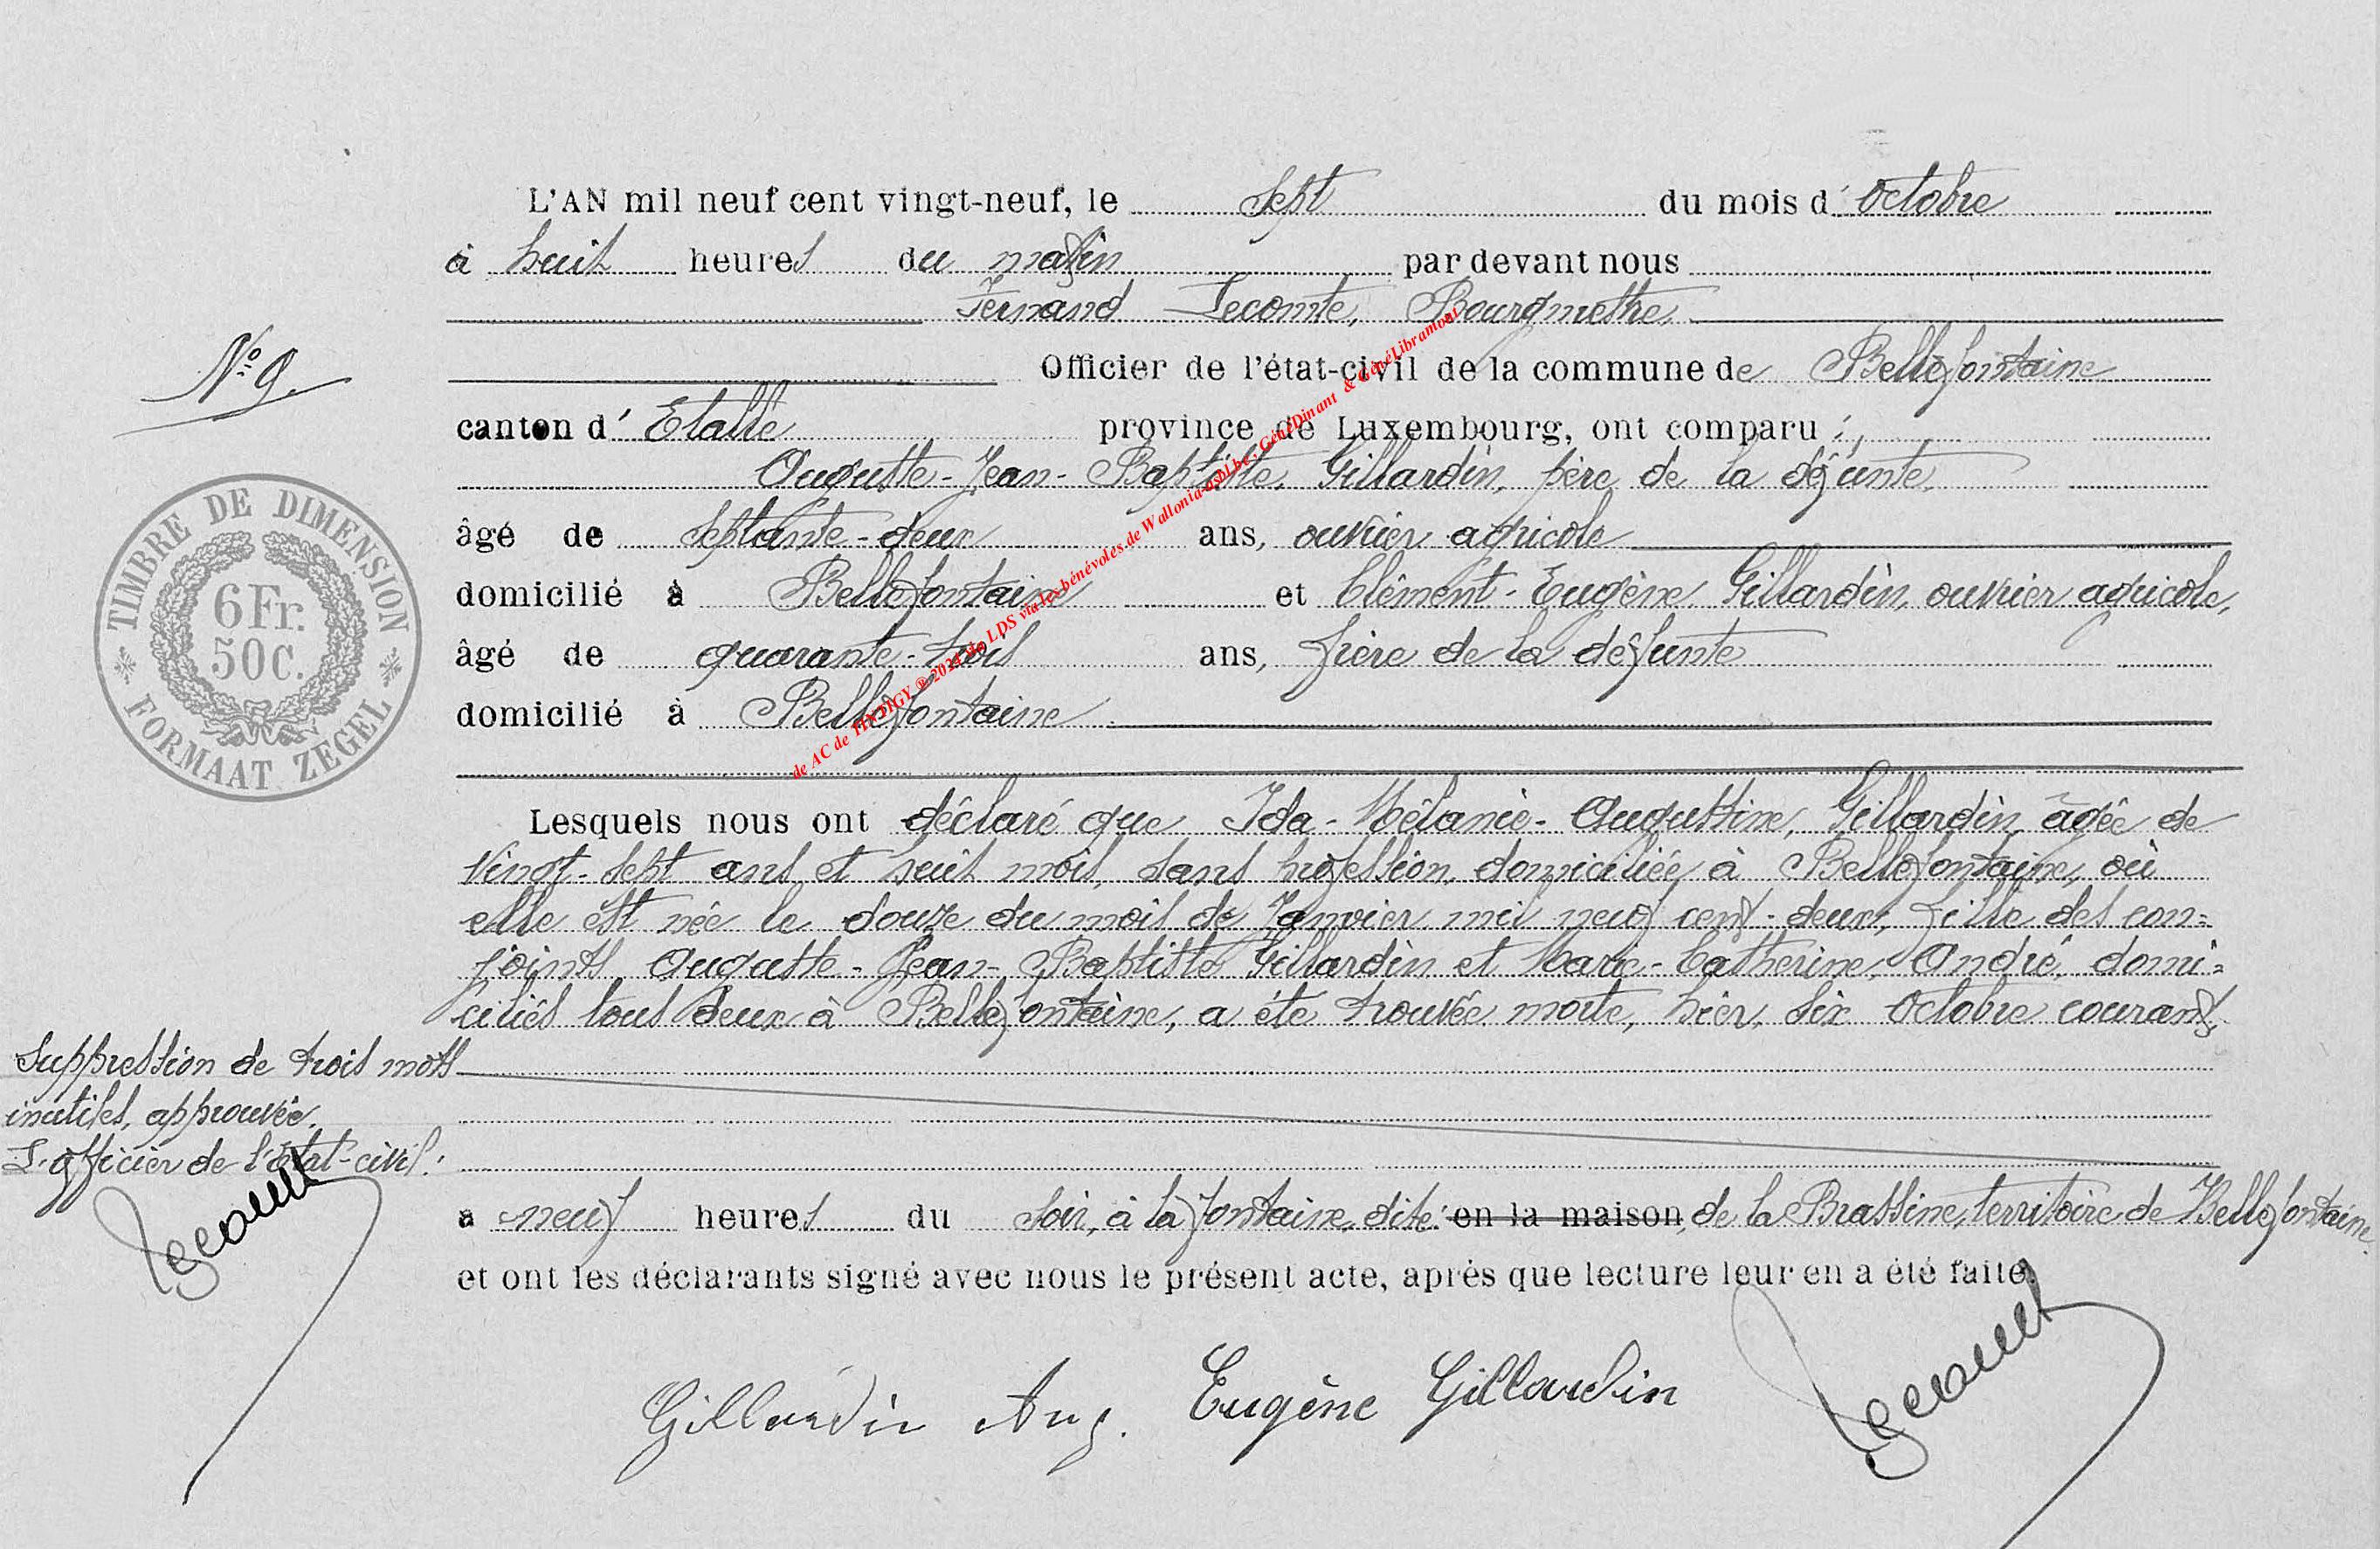 L'AN mil neuf cent vingt-neuf, le sept du mois d'Octobre
à huit heures du matin par devant nous
Fernand Lecomte, Bourgmestre,
N° 9.
Officier de l'état-civil de la commune de Bellefontaine
canton d'Etalle province de Luxembourg, ont comparu :
Auguste-Jean-Baptiste, Gillardin, père de la défunte,
âgé de septante-deux ans, ouvrier agricole
domicilié à Bellefontaine et Clément-Eugène Gillardin, ouvrier agricole,
âgé de quarante-trois ans, frère de la défunte
domicilié à Bellefontaine
TIMBRE DE DIMENSION
6 Fr.
50 C.
FORMAAT ZEGEL
de AC de TINTIGY ® 2024 via LDS via les bénévoles de Wallonia-asbl.be, GénéDinant & GénéLibramont
Lesquels nous ont déclaré que Ida-Mélanie-Augustine, Gillardin, âgée de
vingt-sept ans et huit mois, sans profession, domiciliée à Bellefontaine, où
elle est née le douze du mois de Janvier mil neuf cent-deux, fille des con=
joints Auguste-Jean-Baptiste Gillardin et Marie-Catherine, André, domi=
ciliés tous deux à Bellefontaine, a été trouvée morte, hier, six Octobre courant,
Suppression de trois mots
inutiles, approuvée.
L'officier de l'état-civil.
Lecomte
a neuf heures du soir, à la fontaine, dite en la maison, de la Brassine, territoire de Bellefontaine.
et ont les déclarants signé avec nous le présent acte, après que lecture leur en a été faite.
Gillardin Aug. Eugène Gillardin Lecomte